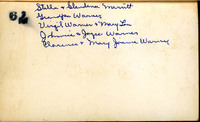 62
Stella & Glendena Merritt
Grandpa Warner
Virgil Warner & Mary Lou
Johnnie & Joyce Warner
Clarence & Mary Joanne Warner